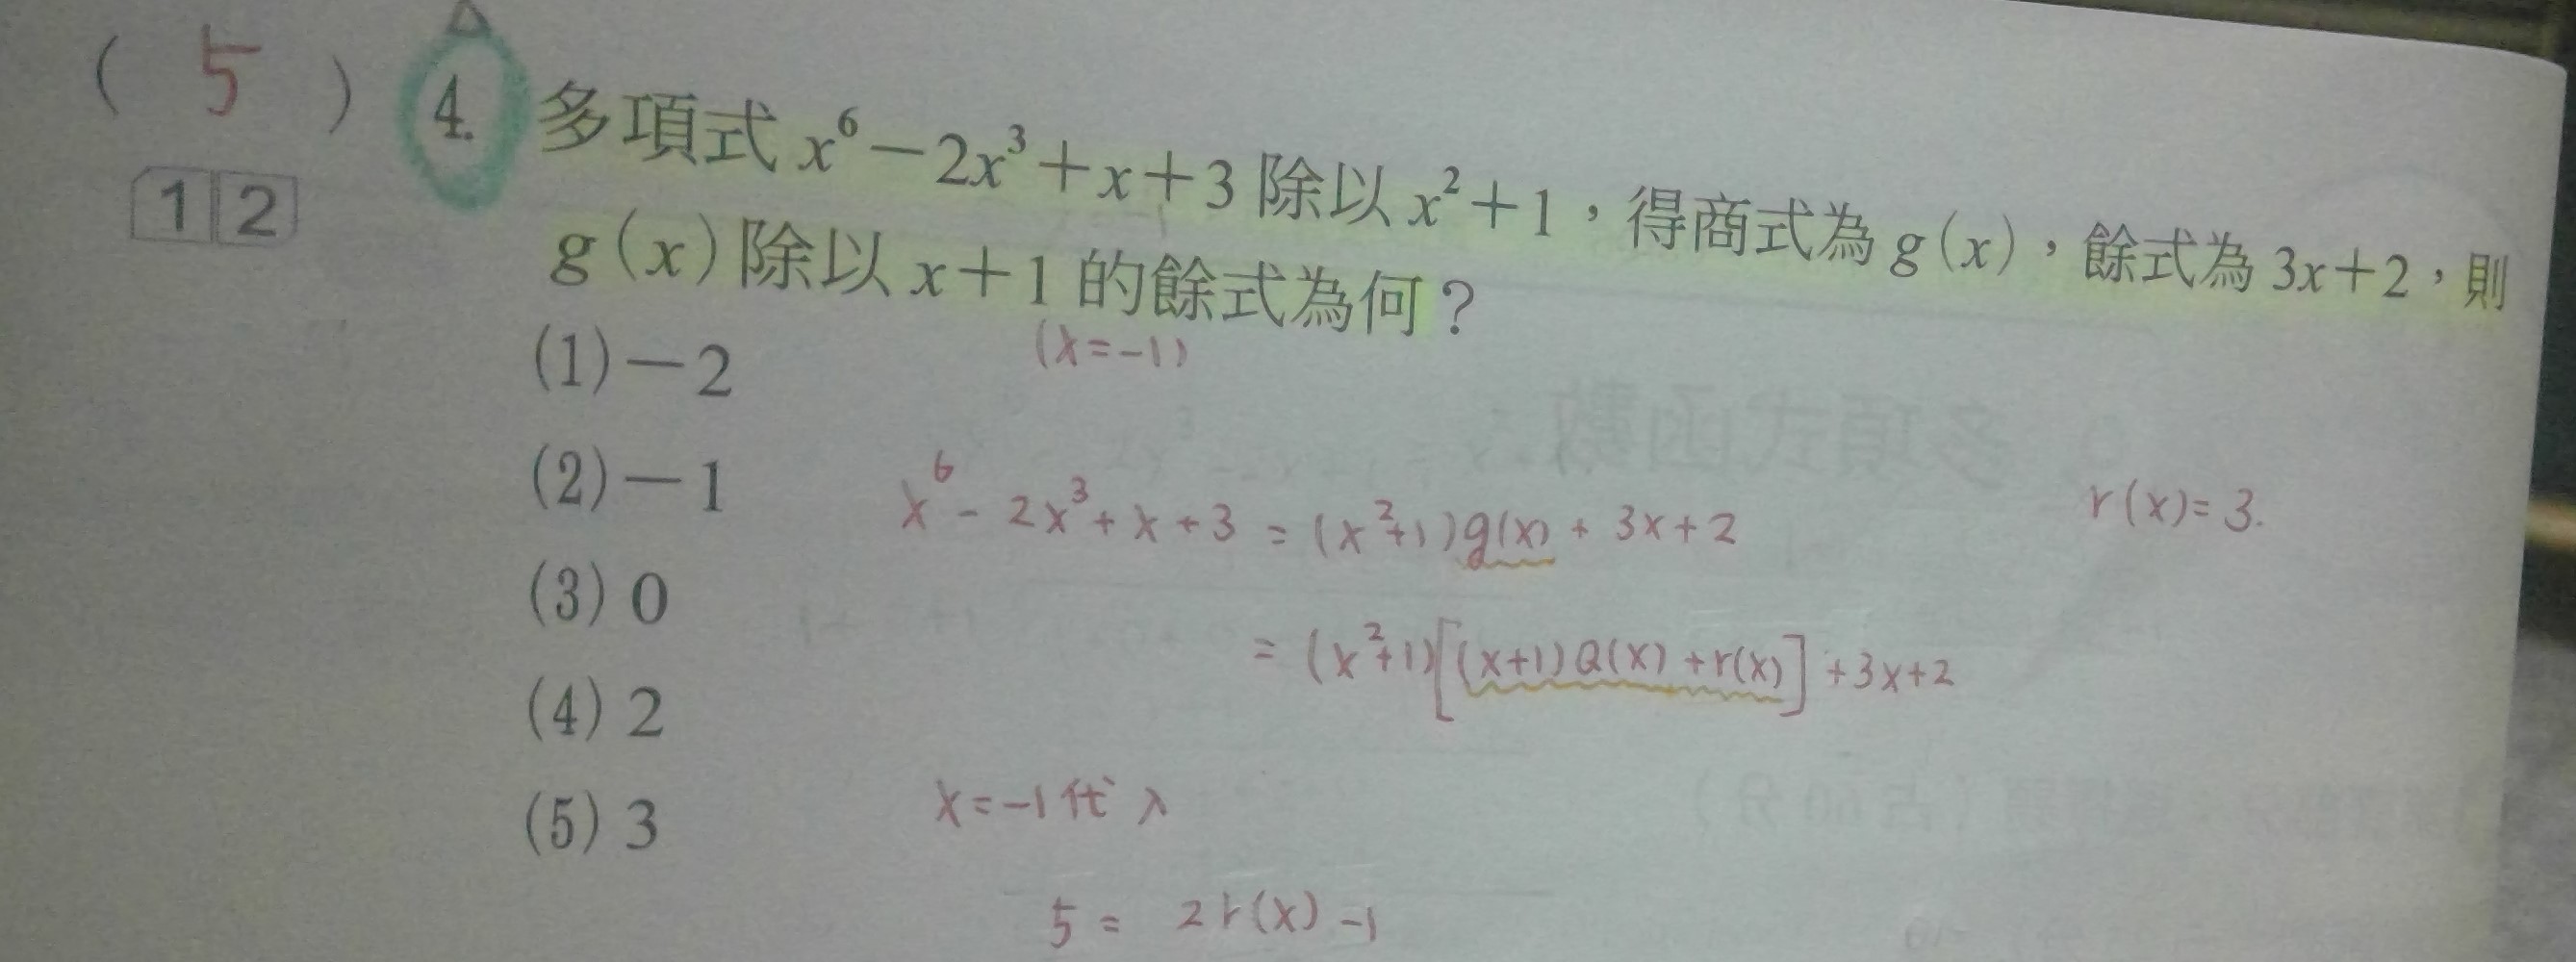 ( 5 ) 4. 多項式 x⁶－2x³＋x＋3 除以 x²＋1，得商式為 g(x)，餘式為 3x＋2，則
1 2
g(x) 除以 x＋1 的餘式為何？
(x=-1)
(1)－2
(2)－1
x⁶ - 2x³ + x + 3 = (x²+1)g(x) + 3x+2
r(x)= 3.
(3) 0
= (x²+1)[(x+1)Q(x) +r(x)] +3x+2
(4) 2
(5) 3
x=-1代入
5 = 2r(x) -1
多項式函數